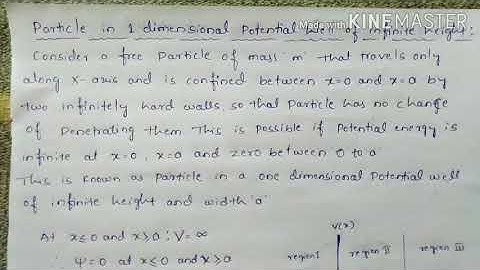 Made with KINEMASTER
Particle in 1 dimensional Potential well of infinite height:
Consider a free Particle of mass 'm' that travels only
along x-axis and is confined between x=0 and x=a by
two infinitely hard walls, so that Particle has no change
of Penetrating them This is possible if Potential energy is
infinite at x=0, x=a and zero between 0 to 'a'
This is known as Particle in a one dimensional Potential well
of infinite height and width 'a'
At x≤0 and x≥a ; V=∞
ψ=0 at x≤0 and x≥a
V(x)
region I
region II
region III